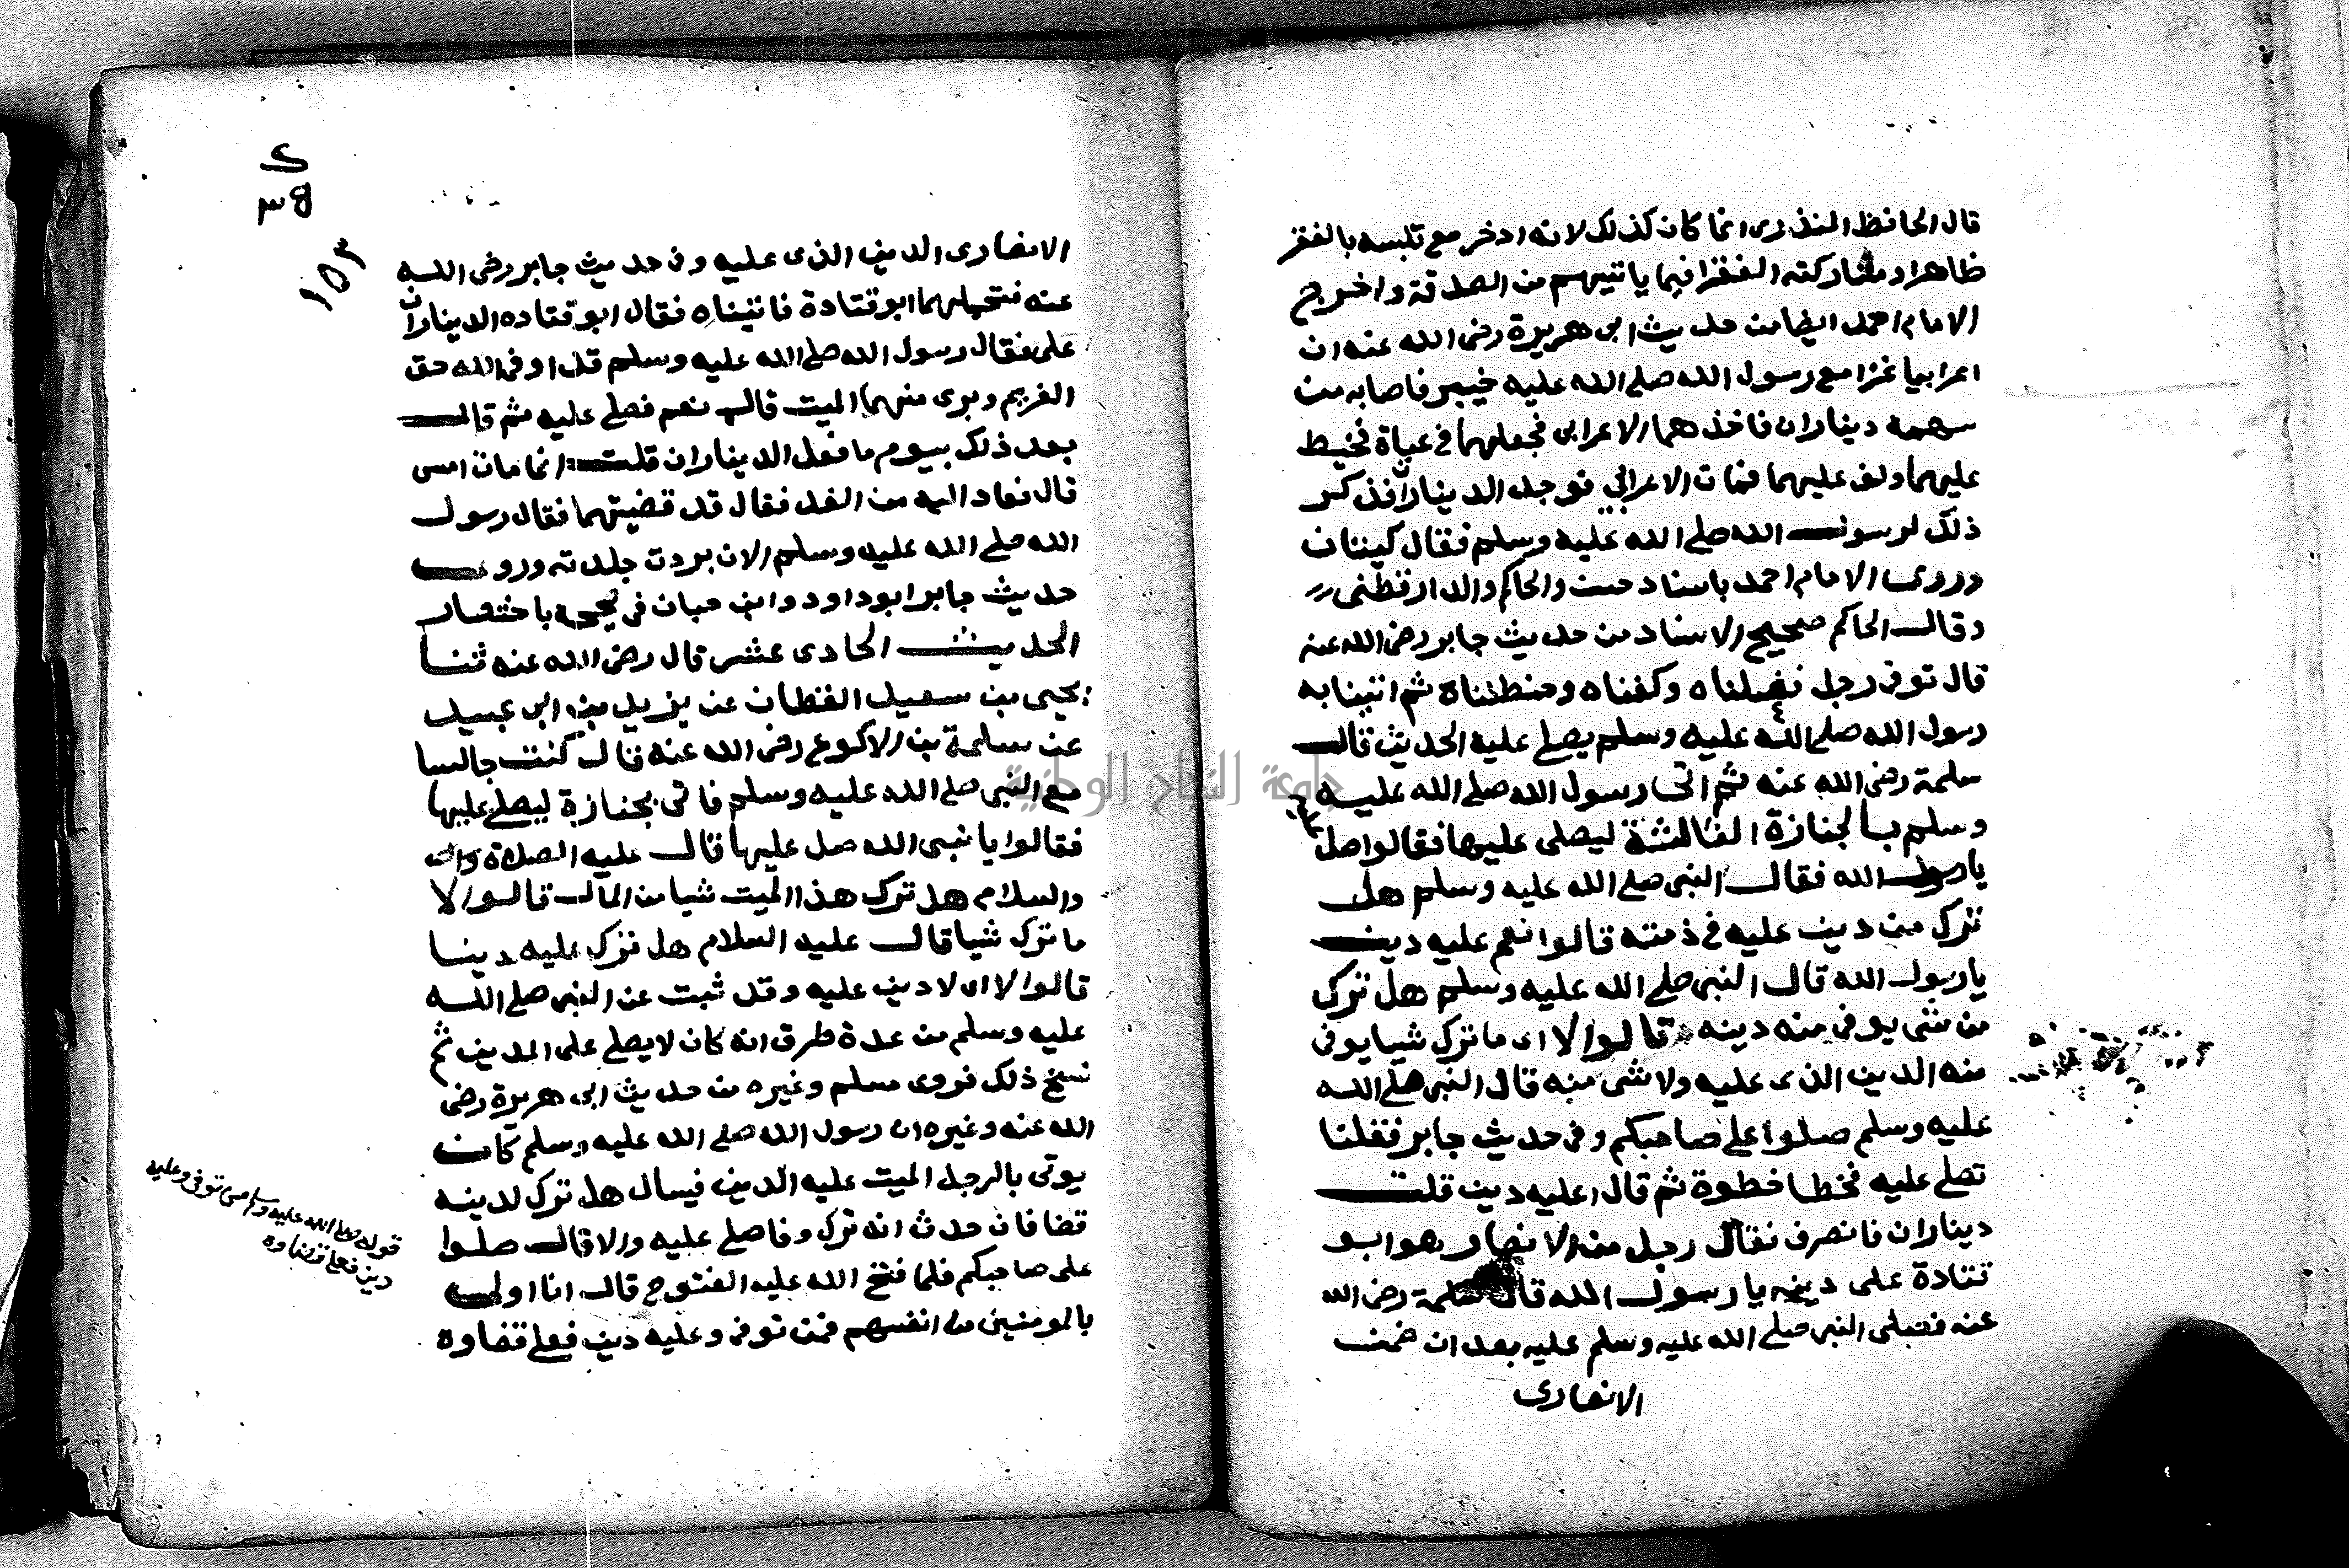 قال الحافظ المنذرى انما كان كذلك لانه ادخر مع تلبسه بالفقر
ظاهرا ومشاركته الفقرا فيما ياتيهم من الصدقة واخرج
الامام احمد ايضا من حديث ابى هريرة رضى الله عنه ان
اعرابيا غزا مع رسول الله صلى الله عليه خيبر فاصابه من
سهمه ديناران فاخذهما الاعرابى فجعلهما فى عباة فخيط
عليهما ولف عليهما فمات الاعرابي فوجد الديناران فذكر
ذلك لرسول الله صلى الله عليه وسلم فقال كيتان
وروى الامام احمد باسناد حسن والحاكم والدارقطنى
وقال الحاكم صحيح الاسناد من حديث جابر رضى الله عنه
قال توفى رجل فغسلناه وكفناه وحنطناه ثم اتينا به
رسول الله صلى الله عليه وسلم يصلى عليه الحديث قال
سلمة رضى الله عنه ثم اتى رسول الله صلى الله عليه
وسلم بالجنازة الثالثة ليصلى عليها فقالوا صل
يارسول الله فقال النبى صلى الله عليه وسلم هل
ترك من دين عليه فى ذمته قالوا نعم عليه دين
يارسول الله قال النبى صلى الله عليه وسلم هل ترك
من شى يوفى منه دينه قالوا لا اى ما ترك شيا يوفى
منه الدين الذى عليه ولا شى منه قال النبى صلى الله
عليه وسلم صلوا على صاحبكم وفى حديث جابر فقلنا
تصلى عليه فخطا خطوة ثم قال اعليه دين قلت
ديناران فانصرف فقال رجل من الانصار وهو ابو
قتادة على دينه يا رسول الله قال سلمة رضى الله
عنه فصلى النبى صلى الله عليه وسلم عليه بعد ان ضمن
الانصارى
١٥٣
الانصارى الدين الذى عليه وفى حديث جابر رضى الله
عنه فتحملهما ابو قتادة فاتيناه فقال ابو قتاده الديناران
على فقال رسول الله صلى الله عليه وسلم قد اوفى الله حق
الغريم وبرى منهما الميت قال نعم فصلى عليه ثم قال
بعد ذلك بيوم ما فعل الديناران قلت انما مات امس
قال فعاد اليه من الغد فقال قد قضيتهما فقال رسول
الله صلى الله عليه وسلم الان بردت جلدته وروى
حديث جابر ابو داود وابن حبان فى صحيحه باختصار
الحديث الحادى عشر قال رضى الله عنه ثنا
يحيى بن سعيد القطان عن يزيد بن ابى عبيد
عن سلمة بن الاكوع رضى الله عنه قال كنت جالسا
مع النبى صلى الله عليه وسلم فاتى بجنازة ليصلى عليها
فقالوا يا نبى الله صل عليها قال عليه الصلاة
والسلام هل ترك هذا الميت شيا من المال قالوا لا
ما ترك شيا قال عليه السلام هل ترك عليه دينا
قالوا لا اى لا دين عليه وقد ثبت عن النبى صلى الله
عليه وسلم من عدة طرق انه كان لا يصلى على المدين ثم
نسخ ذلك فروى مسلم وغيره من حديث ابى هريرة رضى
الله عنه وغيره ان رسول الله صلى الله عليه وسلم كان
يوتى بالرجل الميت عليه الدين فيسال هل ترك لدينه
قضا فان حدث انه ترك وفا صلى عليه والا قال صلوا
على صاحبكم فلما فتح الله عليه الفتوح قال انا اولى
بالمومنين من انفسهم فمن توفى وعليه دين فعلى قضاوه
قوله صلى الله عليه وسلم من توفى وعليه
دين فعلى قضاوه
جامعة النجاح الوطنية